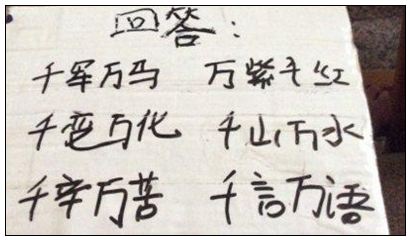 回答：
千军万马 万紫千红
千变万化 千山万水
千辛万苦 千言万语